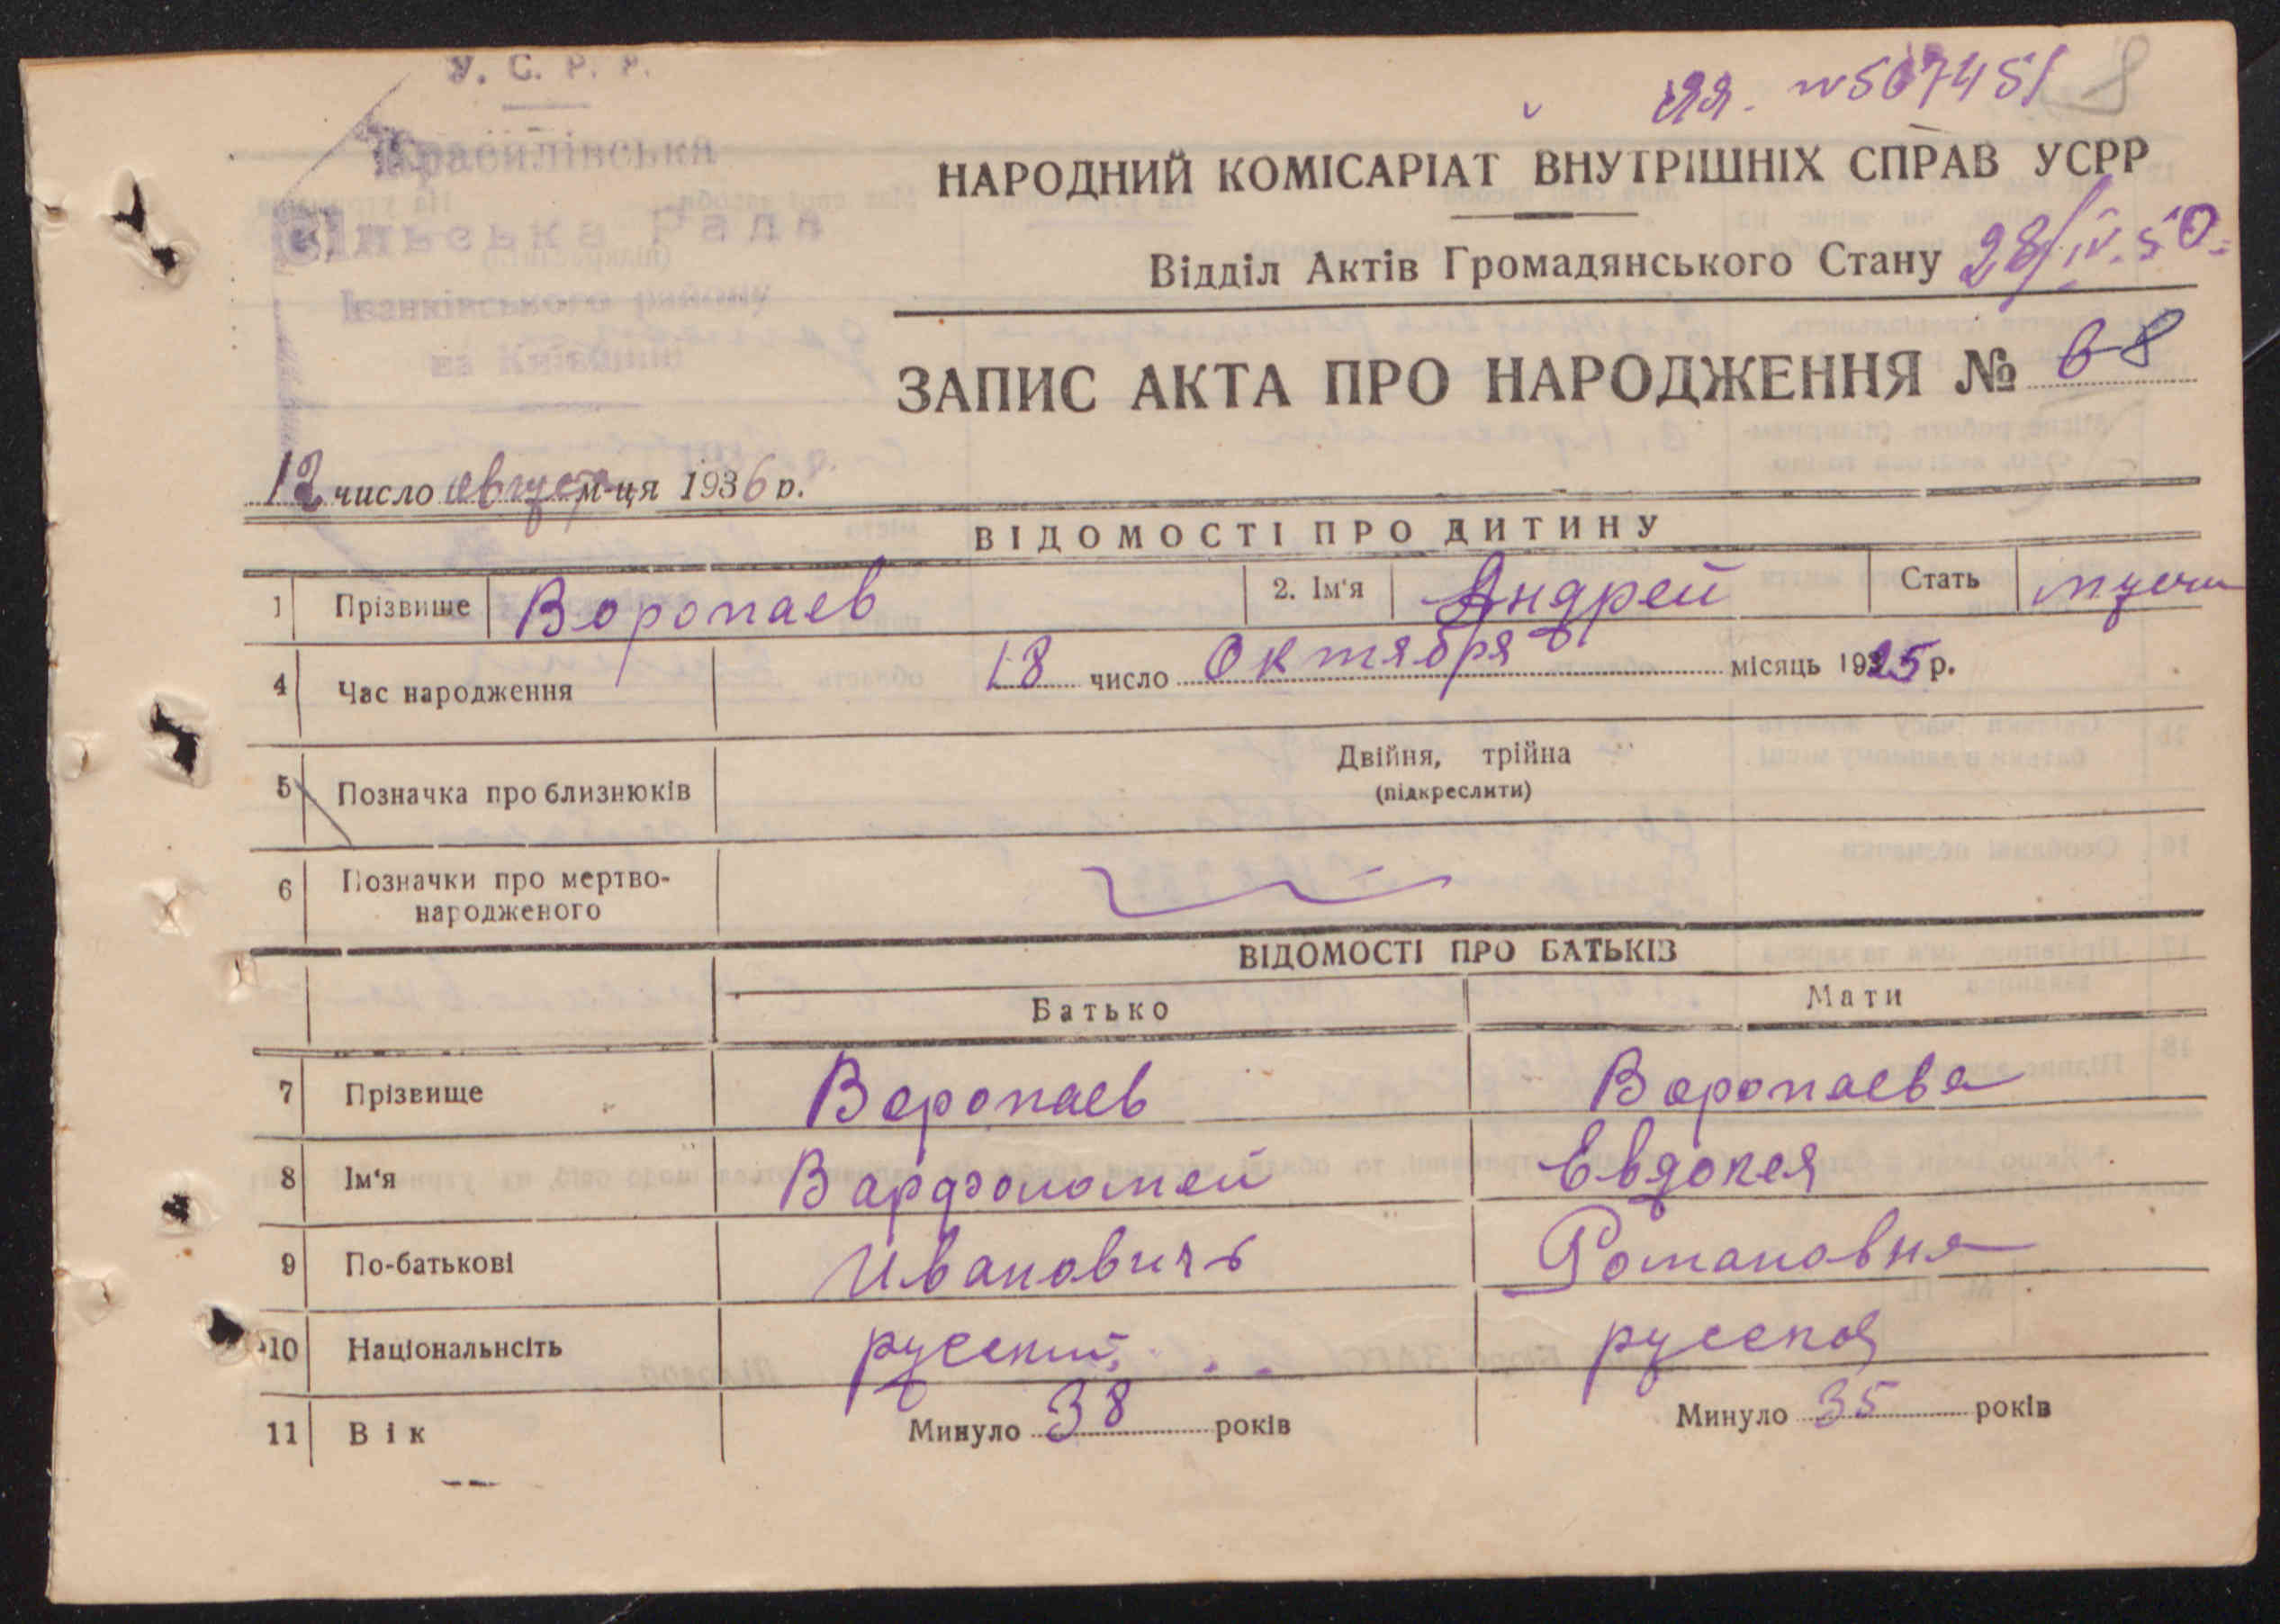 У. С. Р. Р.
Красилівська
Сільська Рада
Іванківського району
на Київщині
ЯЯ. №507451 8
НАРОДНИЙ КОМІСАРІАТ ВНУТРІШНІХ СПРАВ УСРР
Відділ Актів Громадянського Стану 28/IV.50.
ЗАПИС АКТА ПРО НАРОДЖЕННЯ № 8
12 число август м-ця 1936 р.
ВІДОМОСТІ ПРО ДИТИНУ
1 Прізвище Воропаев 2. Ім'я Андрей Стать
4 Час народження 18 число Октября місяць 1925 р.
5 Позначка про близнюків Двійня, трійна
(підкреслити)
6 Позначки про мертво-
народженого
ВІДОМОСТІ ПРО БАТЬКІВ
Батько Мати
7 Прізвище Воропаев Воропаева
8 Ім'я Варфоломей Евдокея
9 По-батькові Ивановичь Романовня
10 Національнсіть русский русская
11 Вік Минуло 38 років Минуло 35 років